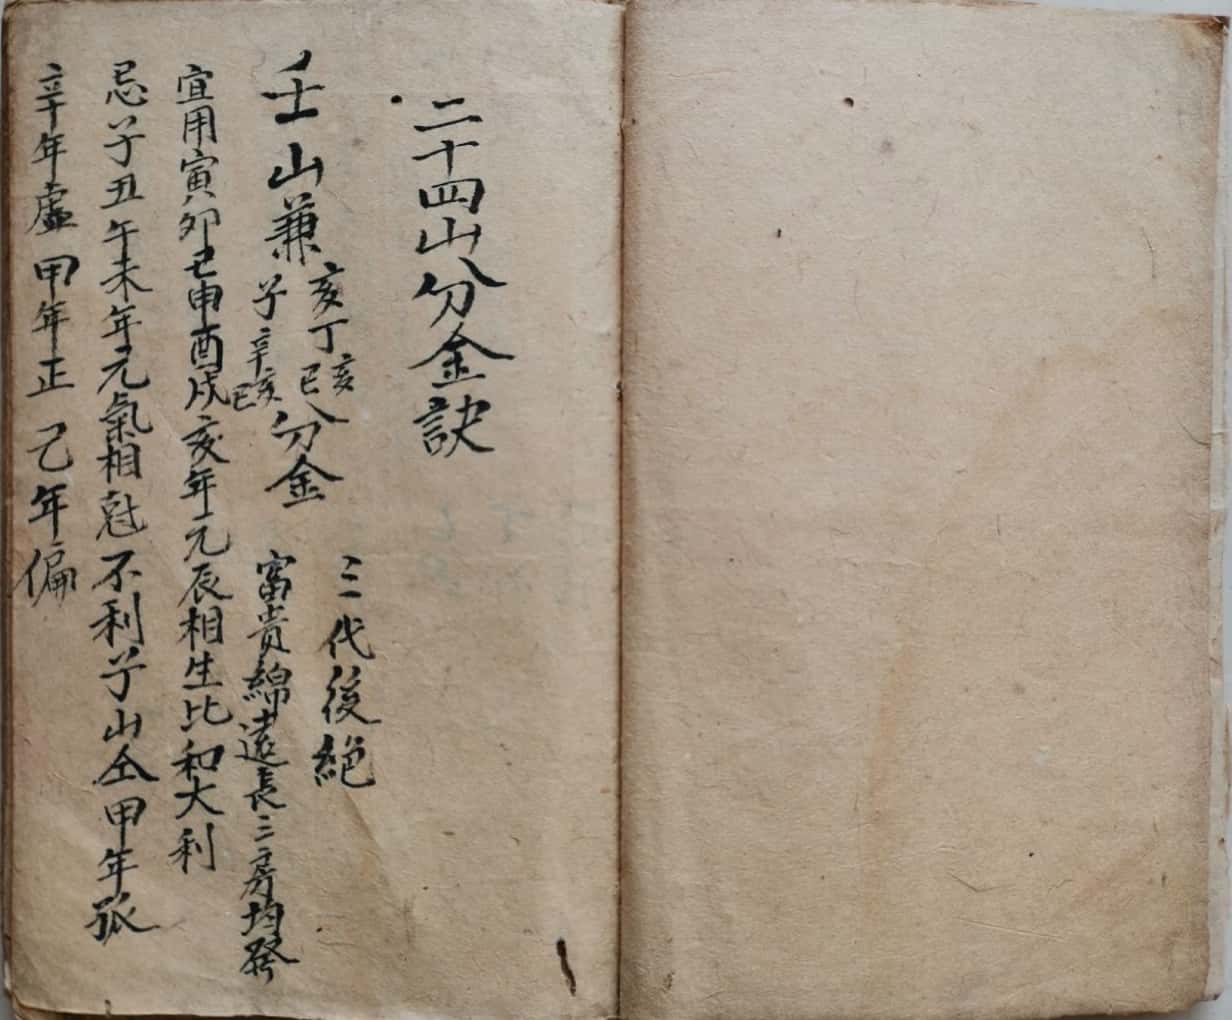 二十四山分金訣
壬山兼亥丁亥巳子辛亥巳分金
三代後絕
富貴綿遠長三房均發
宜用寅卯巳申酉戌亥年元辰相生比和大利
忌子丑午未年元氣相尅不利子山仝甲年孤
辛年虛甲年正乙年偏